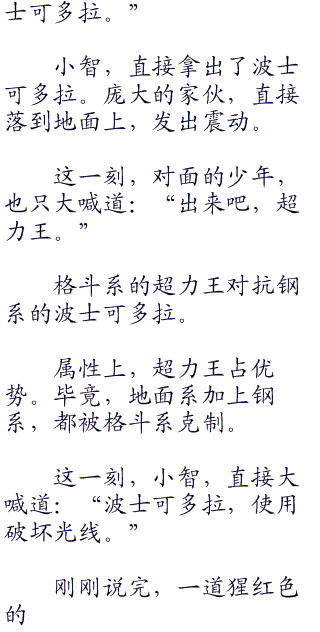 士可多拉。”
小智，直接拿出了波士
可多拉。庞大的家伙，直接
落到地面上，发出震动。
这一刻，对面的少年，
也只大喊道：“出来吧，超
力王。”
格斗系的超力王对抗钢
系的波士可多拉。
属性上，超力王占优
势。毕竟，地面系加上钢
系，都被格斗系克制。
这一刻，小智，直接大
喊道：“波士可多拉，使用
破坏光线。”
刚刚说完，一道猩红色
的